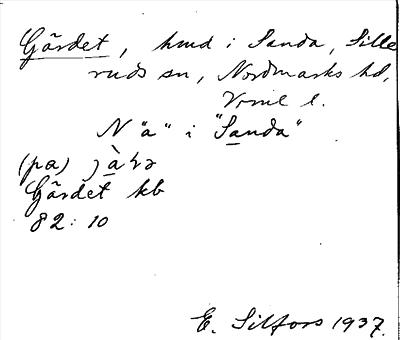 Gärdet, hmd i Sanda, Sille
ruds sn, Nordmarks hd,
Vrml l.
N "a" i "Sanda"
(pa)
Gärdet kb
82:10
E. Silfors 1937.